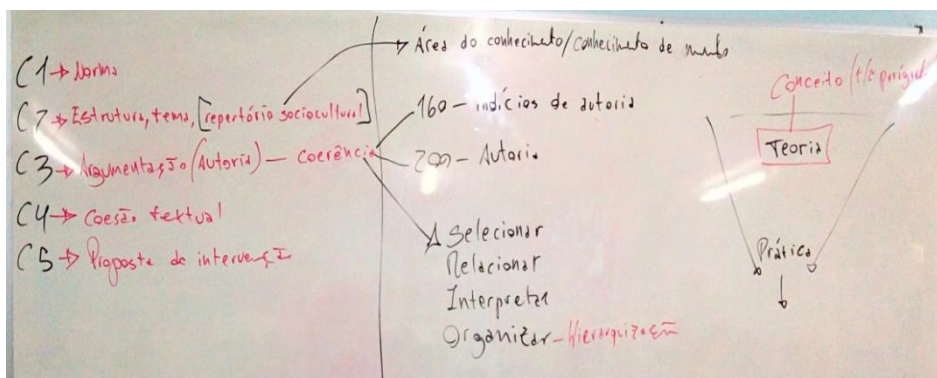 C1 → Norma
C2 → Estrutura, tema, [repertório sociocultural]
C3 → Argumentação (Autoria) — coerência
C4 → Coesão textual
C5 → Proposta de intervenção
→ Área do conhecimento/conhecimento de mundo
160 – indícios de autoria
200 – Autoria
Selecionar
Relacionar
Interpretar
Organizar – Hierarquização
Conceito
Teoria
Prática